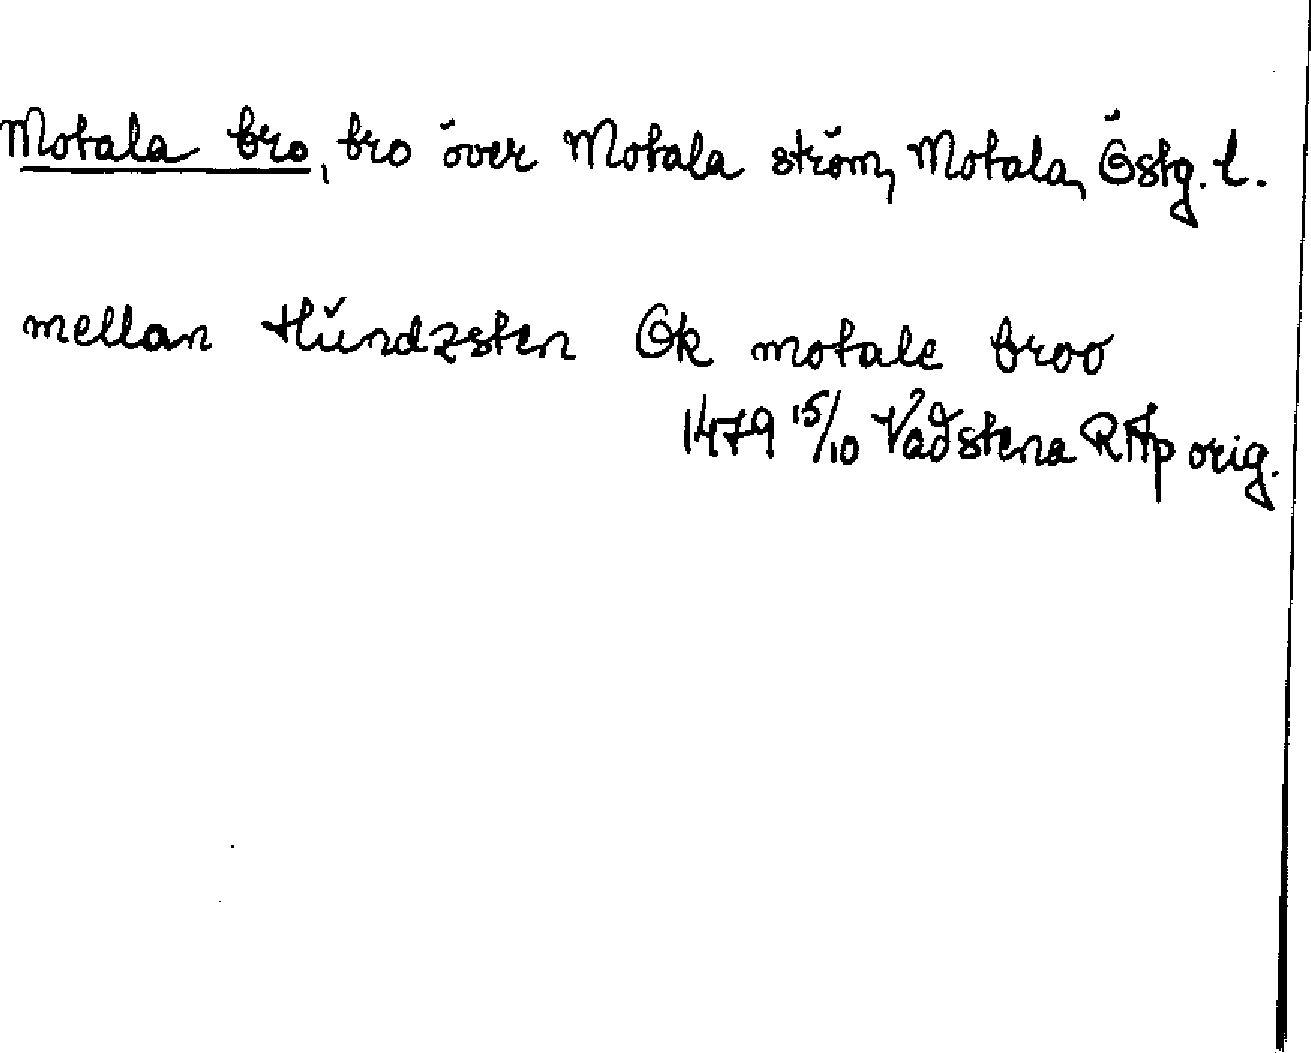 Motala bro, bro över Motala ström, Motala, Östg. l.
mellan Hundzsten Ok motale broo
1479 15/10 Vadstena RAp orig.